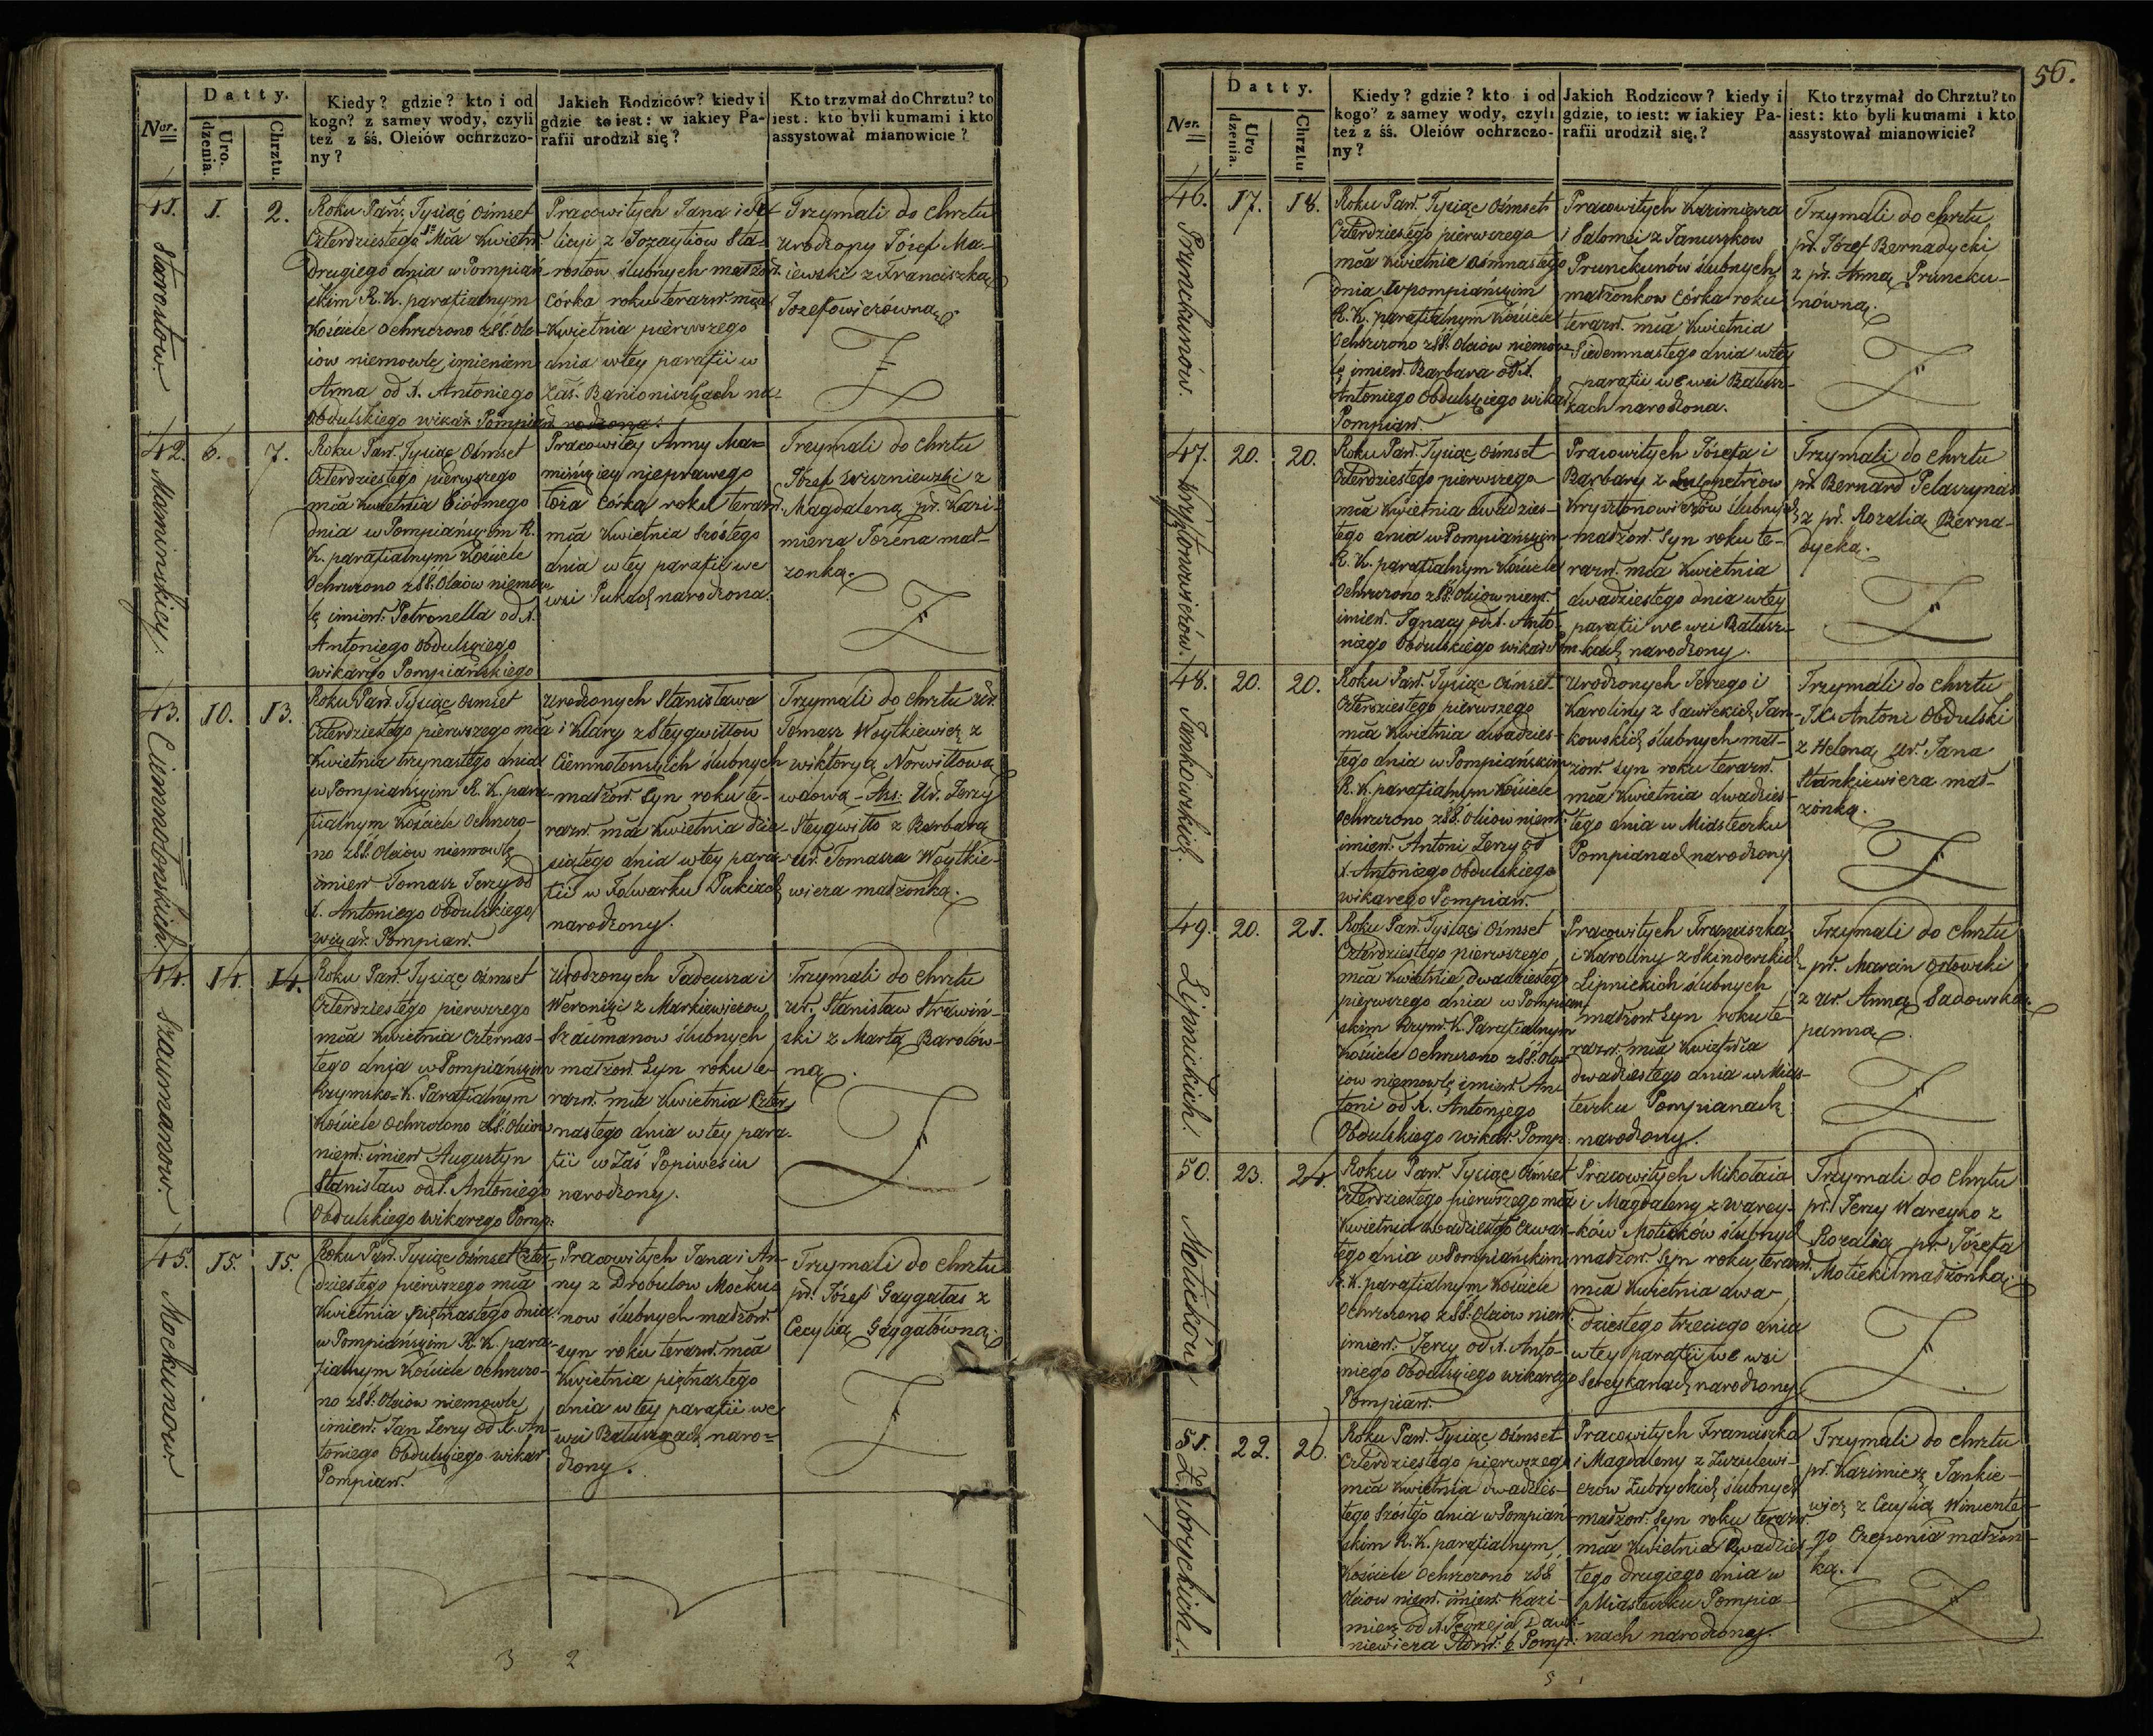 56.
Datty.
Ner.
Uro.
dzenia.
Chrztu.
Kiedy? gdzie? kto i od
kogo? z samey wody, czyli
też z śś. Oleiów ochrzczo-
ny?
Jakich Rodziców? kiedy i
gdzie to iest: w iakiey Pa-
rafii urodził się?
Kto trzymał do Chrztu? to
iest: kto byli kumami i kto
assystował mianowicie?
41.
Starostow.
1.
2.
Roku Pań. Tysiąć Ośmset
Czterdziestego 1º Mca Kwietn.
drugiego dnia w Pompiań-
skim R. K. parafialnym
Kościele Ochrzczono z SŚ. Ole-
iow niemowlę imieniem
Anna od X. Antoniego
Obdulskiego wikar. Pompiań.
Pracowitych Jana i Fe-
licyi z Jozaytiow Sta-
rostow ślubnych małżon.
Córka roku terazn. mca
Kwietnia pierwszego
dnia w tey parafii w
Zaś. Banioniszkach na-
rodzona.
Trzymali do chrztu
Urodzony Józef Ma-
iewski z Franciszką
Jozefowiczówną
42.
Maminskiey.
6.
7.
Roku Pań. Tysiąc Ośmset
Czterdziestego pierwszego
mca Kwietnia Siódmego
dnia w Pompiańskim R.
K. parafialnym Kościele
Ochrzczono z SŚ. Oleiów niemow-
lę imien. Petronella od X.
Antoniego Obdulskiego
wikarego Pompiańskiego
Pracowitey Anny Ma-
mińskiey nieprawego
łoża Córka roku terazn.
mca Kwietnia Szóstego
dnia w tey parafii we
wsi Pukach narodzona.
Trzymali do chrztu
Józef Wiszniewski z
Magdaleną pr. Kazi-
mierza Jozena mał-
żonką.
43.
Ciemnotonskich.
10.
13.
Roku Pań. Tysiąc Ośmset
Czterdziestego pierwszego mca
Kwietnia trzynastego dnia
w Pompiańskim R. K. para-
fialnym Kościele Ochrzczo-
no z SŚ. Oleiow niemowlę
imien. Tomasz Jerzy od
X. Antoniego Obdulskiego
wikar. Pompian.
Urodzonych Stanisława
i Klary z Steygwiłłow
Ciemnotonskich ślubnych
małżon. Syn roku te-
razn. mca Kwietnia dzie-
siątego dnia w tey para-
fii w Folwarku Pukiach
narodzony.
Trzymali do chrztu Ur.
Tomasz Woytkiewicz z
Wiktoryą Norwiłłową
wdową - Ass. Ur. Jerzy
Steygwiłło z Barbarą
Ur. Tomasza Woytkie-
wicza małżonką.
44.
Szaumanow.
14.
14.
Roku Pań. Tysiąc Ośmset
Czterdziestego pierwszego
mca Kwietnia Czternas-
tego dnia w Pompiańskim
Rzymsko-K. Parafialnym
Kościele Ochrzczono z SŚ. Oleiow
niem. imien. Augustyn
Stanisław od X. Antoniego
Obdulskiego wikarego Pomp.
Urodzonych Tadeusza i
Weroniki z Markiewiczow
Szaumanow ślubnych
małżon. Syn roku te-
razn. mca Kwietnia Czter-
nastego dnia w tey para-
fii w Zaś Popiwesiu
narodzony.
Trzymali do chrztu
Ur. Stanisław Strawiń-
ski z Martą Barolów-
ną.
45.
Mockunow.
15.
15.
Roku Pań. Tysiąc Ośmset Czter-
dziestego pierwszego mca
Kwietnia piętnastego dnia
w Pompiańskim R. K. para-
fialnym Kościele Ochrzczo-
no z SŚ. Oleiow niemowle
imien. Jan Jerzy od X. An-
toniego Obdulskiego wikar.
Pompian.
Pracowitych Jana i An-
ny z Drobulow Mocku-
now ślubnych małżon.
Syn roku terazn. mca
Kwietnia piętnastego
dnia w tey parafii we
wsi Bałuszkach naro-
dzony.
Trzymali do chrztu
pr. Józef Gaygałas z
Cecylią Gaygałówną.
3 2
Datty.
Ner.
Uro
dzenia.
Chrztu
Kiedy? gdzie? kto i od
kogo? z samey wody, czyli
też z śś. Oleiów ochrzczo-
ny?
Jakich Rodzicow? kiedy i
gdzie, to iest: w iakiey Pa-
rafii urodził się,?
Kto trzymał do Chrztu? to
iest: kto byli kumami i kto
assystował mianowicie?
46.
Prunckunów.
17.
18.
Roku Pań. Tysiąc Ośmset
Czterdziestego pierwszego
mca Kwietnia Osmnastego
dnia w Pompiańskim
R. K. parafialnym Kościele
Ochrzczono z SŚ. Oleiów niemow-
lę imien. Barbara od X.
Antoniego Obdulskiego wikar.
Pompian.
Pracowitych Kazimierza
i Salomei z Januszkow
Prunckunów ślubnych
małżonkow Córka roku
terazn. mca Kwietnia
Siedemnastego dnia w tey
parafii we wsi Bałusz-
kach narodzona.
Trzymali do chrztu
pr. Józef Bernadycki
z pr. Anną Pruncku-
nówną.
47.
Krysztonowiczów.
20.
20.
Roku Pań. Tysiąc Ośmset
Czterdziestego pierwszego
mca Kwietnia dwudzies-
tego dnia w Pompiańskim
R. K. parafialnym Kościele
Ochrzczono z SŚ. Oleiow niem.
imien. Ignacy od X. Anto-
niego Obdulskiego wikar. Pom.
Pracowitych Józefa i
Barbary z
Krysztonowiczów ślubnych
małżon. Syn roku te-
razn. mca Kwietnia
dwudziestego dnia w tey
parafii we wsi Bałusz-
kach narodzony.
Trzymali do chrztu
pr. Bernard Pelaszynas
z pr. Rozalią Berna-
dycką.
48.
Jankowskich.
20.
20.
Roku Pań. Tysiąc Ośmset
Czterdziestego pierwszego
mca Kwietnia dwudzies-
tego dnia w Pompiańskim
R. K. parafialnym Kościele
Ochrzczono z SŚ. Oleiow niem.
imien. Antoni Jerzy od
X. Antoniego Obdulskiego
wikarego Pompian.
Urodzonych Jerzego i
Karoliny z Sawickich Jan-
kowskich ślubnych mał-
żon. Syn roku terazn.
mca Kwietnia dwudzies-
tego dnia w Miasteczku
Pompianach narodzony
Trzymali do chrztu
J.X. Antoni Obdulski
z Heleną Ur. Jana
Stankiewicza mał-
żonką.
49.
Lipnickich.
20.
21.
Roku Pań. Tysiąc Ośmset
Czterdziestego pierwszego
mca Kwietnia Dwudziestego
pierwszego dnia w Pompian-
skim Rzym. K. Parafialnym
Kościele Ochrzczono z SŚ. Ole-
iow niemowlę imien. An-
toni od X. Antoniego
Obdulskiego wikar. Pomp.
Pracowitych Franciszka
i Karoliny z Skinderskich
Lipnickich ślubnych
małżon. Syn roku te-
razn. mca Kwietnia
dwudziestego dnia w Mias-
teczku Pompianach
narodzony.
Trzymali do chrztu
pr. Marcin Orłowski
z Ur. Anną Sadowską
panną.
50.
Motieków
23.
24.
Roku Pań. Tysiąc Ośmset
Czterdziestego pierwszego mca
Kwietnia dwudziestego Czwar-
tego dnia w Pompiańskim
R. K. parafialnym Kościele
Ochrzczono z SŚ. Oleiow niem.
imien. Jerzy od X. Anto-
niego Obdulskiego wikarego
Pompian.
Pracowitych Mikołaia
i Magdaleny z Warey-
ków Motieków ślubnych
małżon. Syn roku terazn.
mca Kwietnia dwa-
dziestego trzeciego dnia
w tey parafii we wsi
Sereykanach narodzony
Trzymali do chrztu
pr. Jerzy Wareyko z
Rozalią pr. Józefa
Motieki małżonką.
51.
Zubryckich.
22.
26.
Roku Pań. Tysiąc Ośmset
Czterdziestego pierwszego
mca Kwietnia dwudzies-
tego Szóstego dnia w Pompiań-
skim R. K. parafialnym
Kościele Ochrzczono z SŚ.
Oleiow niem. imien. Kazi-
mierz od X. Jędrzeja
niewicza Pomp.
Pracowitych Franciszka
i Magdaleny z Zuzulewi-
czów Zubryckich ślubnych
małżon. Syn roku terazn.
mca Kwietnia Dwudzies-
tego drugiego dnia w
Miasteczku Pompia-
nach narodzony.
Trzymali do chrztu
pr. Kazimierz Jankie-
wicz z Cecylią Wincente-
go Czeponia małżon-
ką.